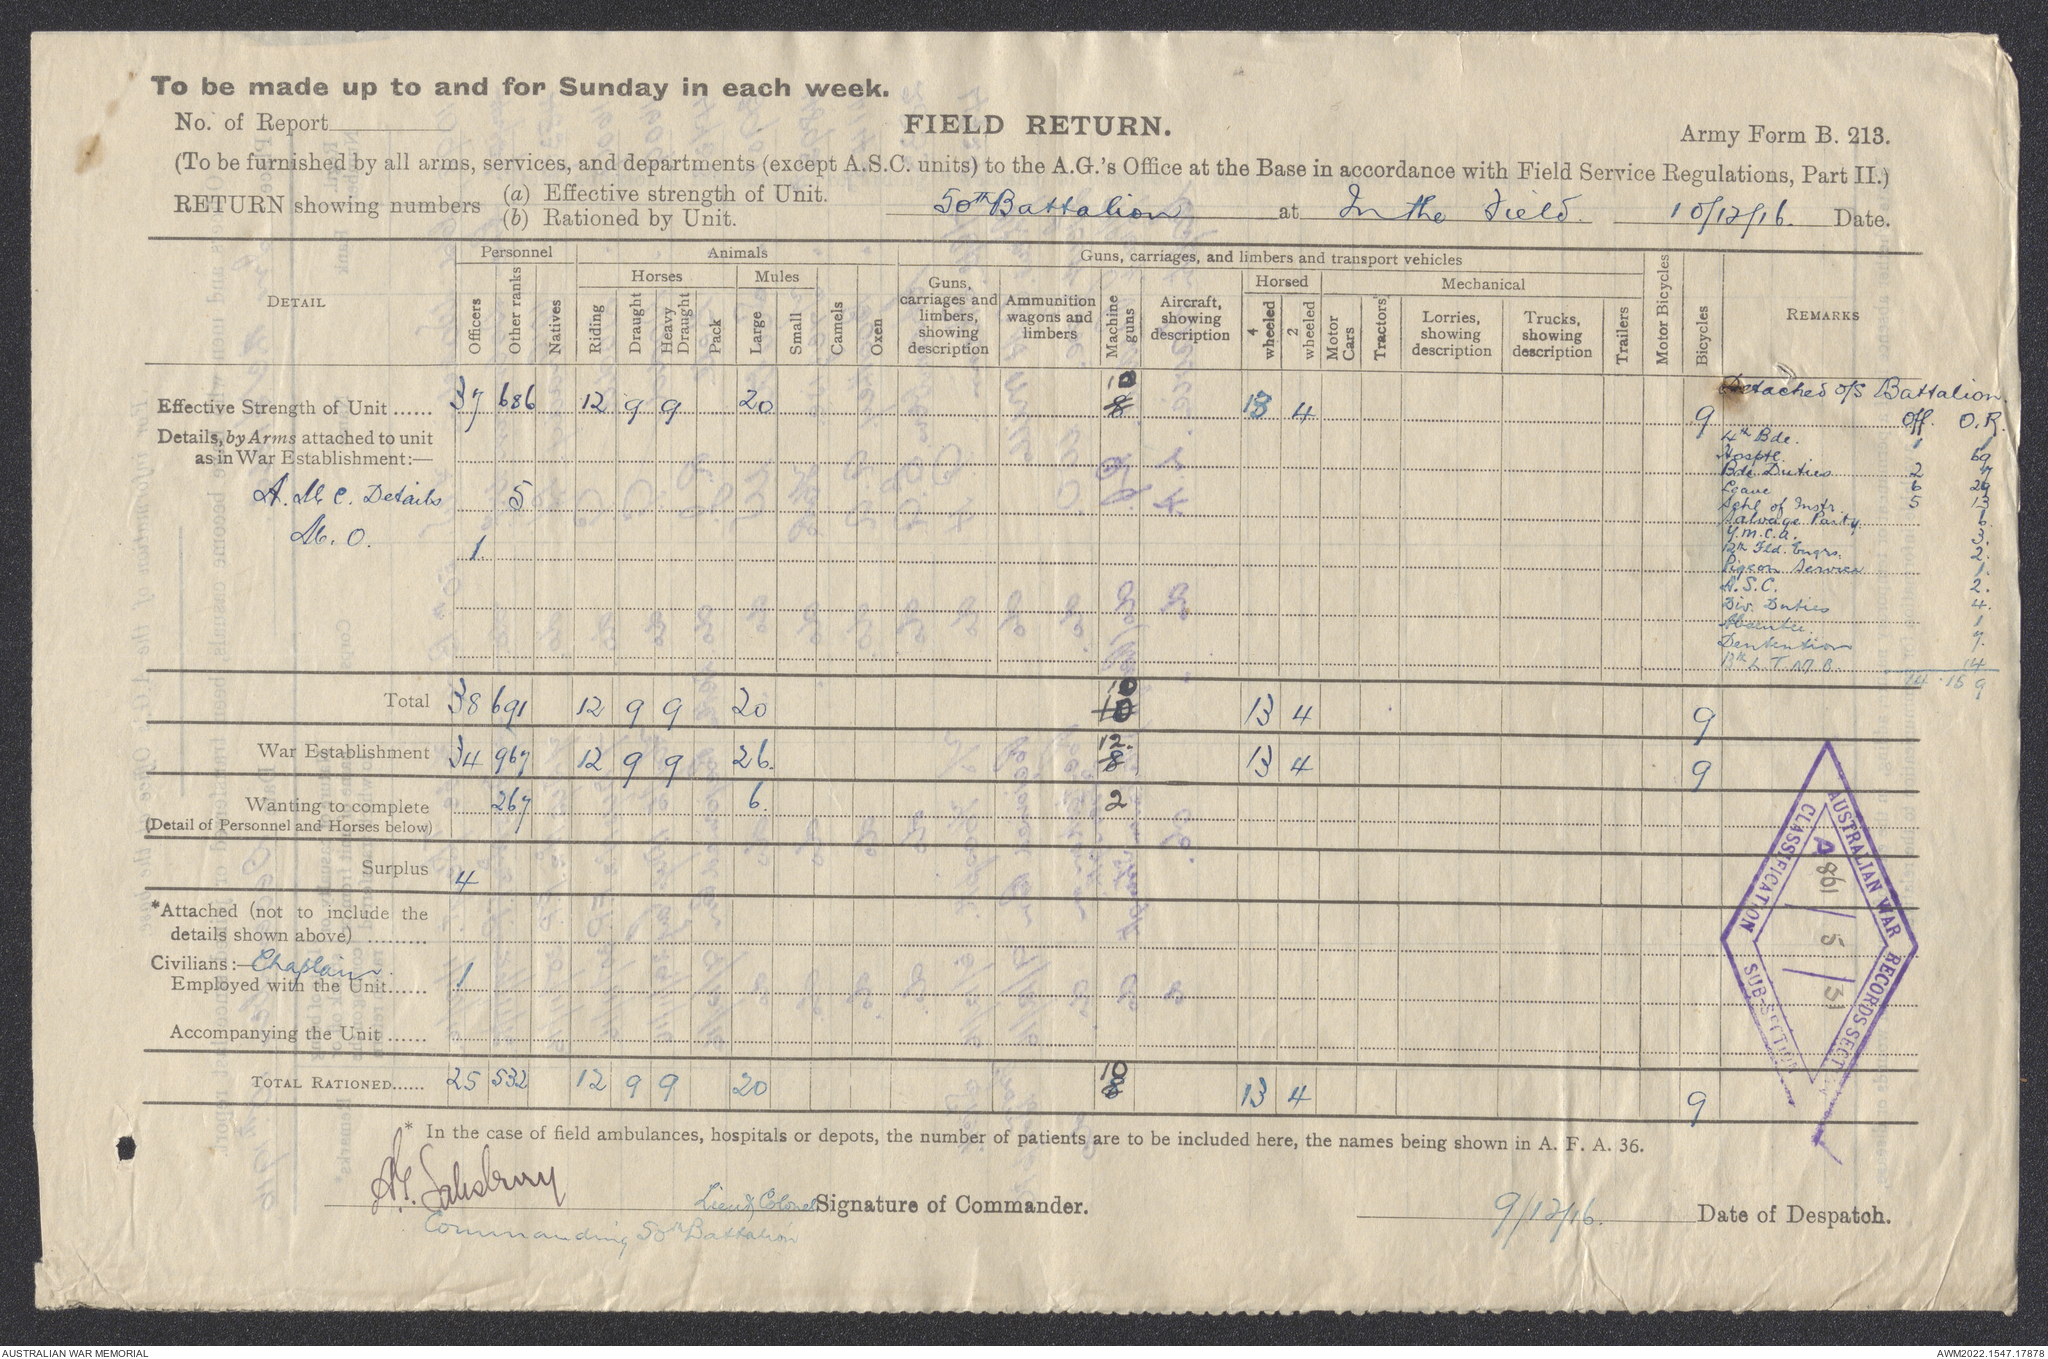 To be made up to and for Sunday in each week.
No. of Report
FIELD RETURN.
Army Form B. 213.
(To be furnished by all arms, services, and departments (except A.S.C. units) to the A.G.'s Office at the Base in accordance with Field Service Regulations, Part II.)
RETURN showing numbers (a) Effective strength of Unit. (b) Rationed by Unit. 50th Battalion at In the Field. 10/12/16. Date.
DETAIL
Personnel
Animals
Guns, carriages, and limbers and transport vehicles
Horses
Mules
Horsed
Mechanical
Officers
Other ranks
Natives
Riding
Draught
Heavy Draught
Pack
Large
Small
Camels
Oxen
Guns, carriages and limbers, showing description
Ammunition wagons and limbers
Machine guns
Aircraft, showing description
4 wheeled
2 wheeled
Motor Cars
Tractors
Lorries, showing description
Trucks, showing description
Trailers
Motor Bicycles
Bicycles
REMARKS
Effective Strength of Unit ...... 37 686 12 9 9 20 10 8 13 4 9
Details, by Arms attached to unit as in War Establishment:—
A. M. C. Details 5
M. O. 1.
Detached o/s Battalion.
Off. O.R.
4th Bde. 1 1
Hosptl. 69
Bde Duties 2 17
Leave 6 29
Schl of Instr. 5 13
Salvage Party.
Y.M.C.A. 3.
12th Fld. Engrs. 2.
Pigeon Service 1.
A.S.C. 2.
Div. Duties 4.
Absentee. 1
Dentention 7.
13th L.T.M.B. 14
14 . 159
Total 38 691 12 9 9 20 10 10 13 4 9
War Establishment 34 967 12 9 9 26. 12. 8 13 4 9
Wanting to complete 267 6. 2
(Detail of Personnel and Horses below)
Surplus 4
*Attached (not to include the details shown above) .........
Civilians:— Chaplain.
Employed with the Unit...... 1
Accompanying the Unit ......
TOTAL RATIONED...... 25 532 12 9 9 20 10 8 13 4 9
* In the case of field ambulances, hospitals or depots, the number of patients are to be included here, the names being shown in A. F. A. 36.
A.G. Salisbury Lieut Colonel Signature of Commander.
Commanding 50th Battalion
9/12/16. Date of Despatch.
AUSTRALIAN WAR RECORDS SECTION
CLASSIFICATION SUB-SECTION
AUSTRALIAN WAR MEMORIAL
AWM2022.1547.17878